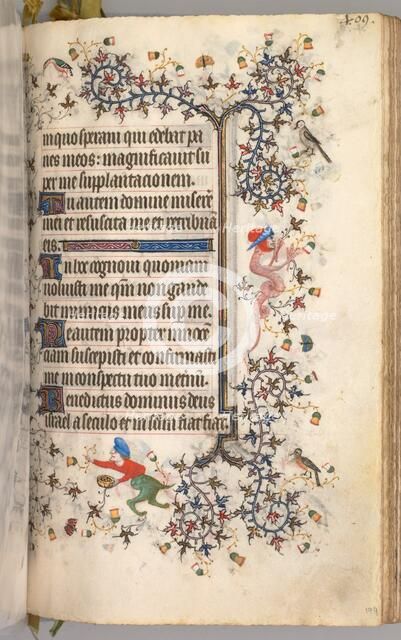 409.
in quo speravi qui edebat pa
nes meos: magnificavit su
per me suplantacionem.
Tu autem domine misere
mei et resuscita me et retribua
eis.
In hoc cognovi quoniam
voluisti me qm non gaude
bit inimicus meus sup me.
Me autem propter innocen
ciam suscepisti et confirmasti
me in conspectu tuo in eternu.
Benedictus dominus deus
israel a seculo et in seculu fiat fiat.
heritage
199